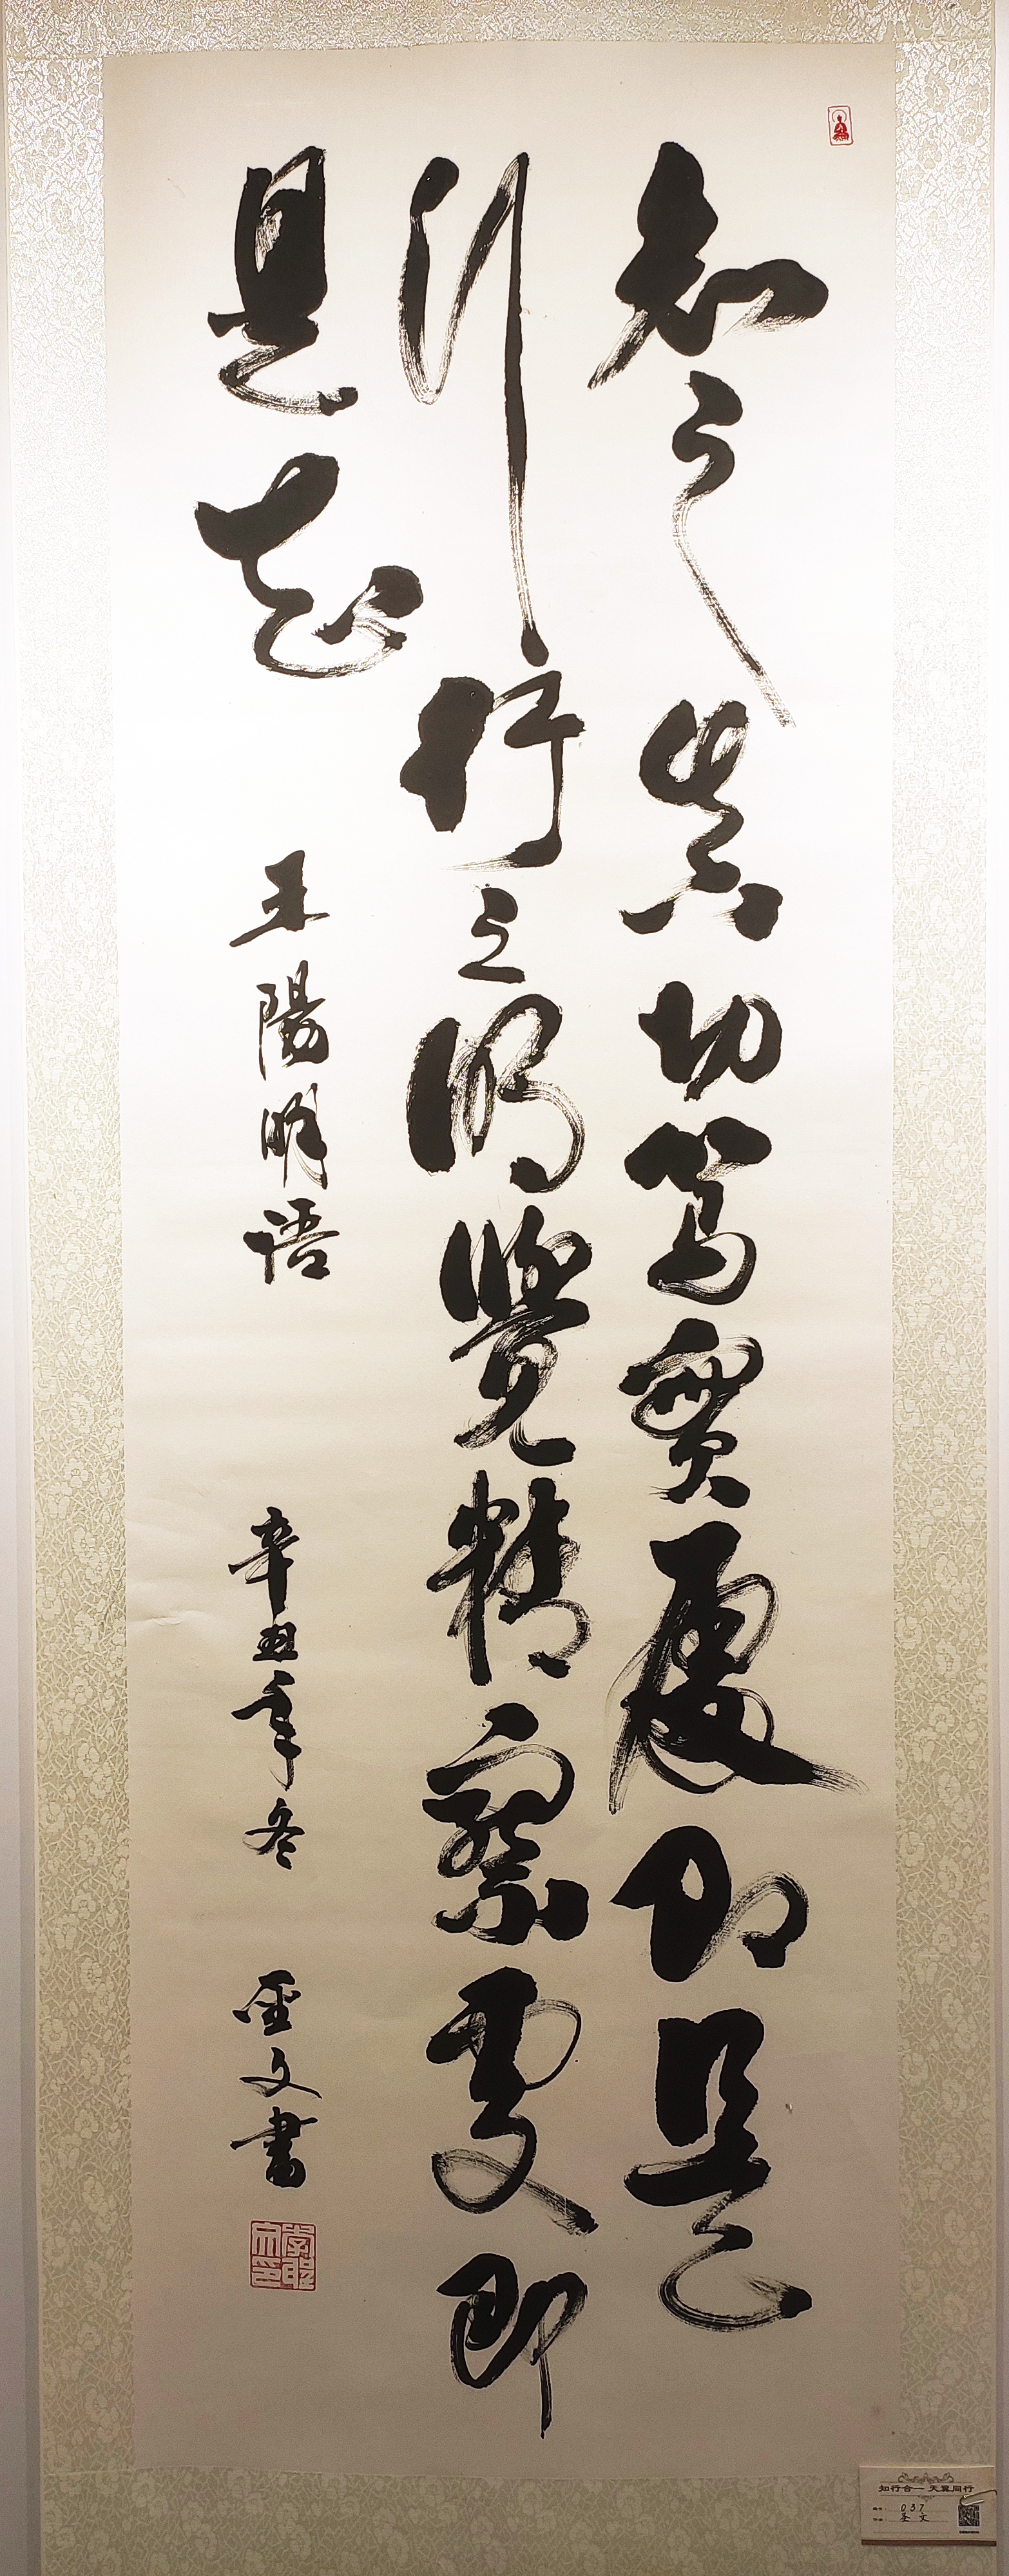 知之真切篤實處即是
行行之明覺精察處即
是知
王陽明語
辛丑年冬
圣文書
知行合一 天翼同行
037
圣文